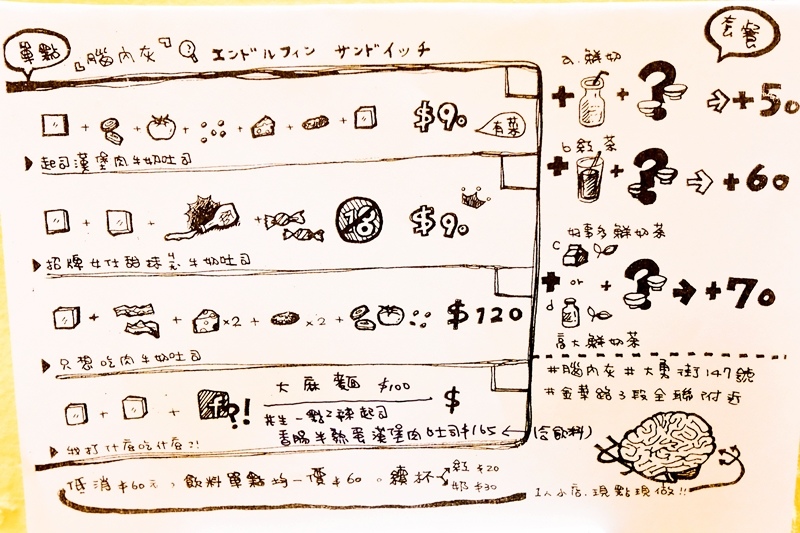 單點
『腦內灰』 エンドルフィン サンドイッチ
$90
有菜
起司漢堡肉牛奶吐司
18
$90
招牌女仕甜辣牛奶吐司
×2 + ×2 +
$120
只想吃肉牛奶吐司
?!
大麻麵 $100
$
先生一點之辣起司
香腸半熟蛋漢堡肉吐司$165 ← (含飲料)
我打什麼吃什麼?!
低消$60元, 飲料單點均一價$60。續杯
紅$20
奶$30
套餐
a. 鮮奶
+ + ? ⇨ +50
b. 紅茶
+ + ? ⇨ +60
好事多鮮奶茶
c
+ or + ? → +70
d
高大鮮奶茶
#腦內灰 #大勇街147號
#金華路3段全聯附近
1人小店, 現點現做!!